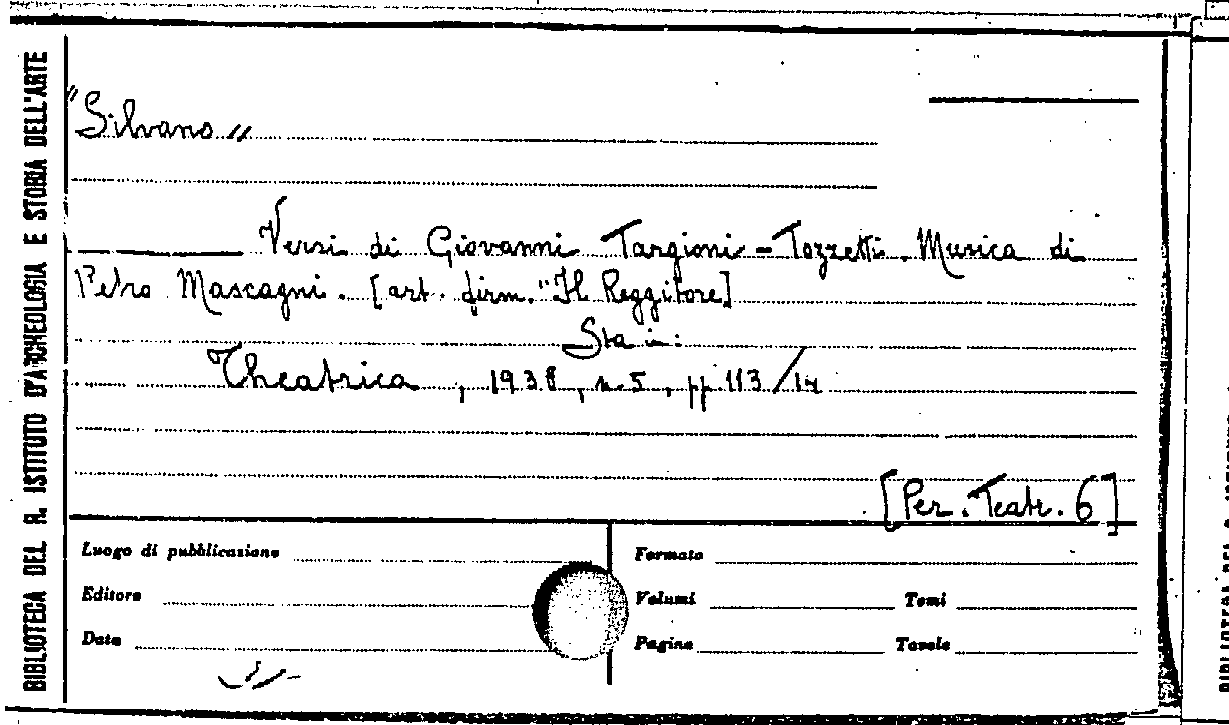 BIBLIOTECA DEL R. ISTITUTO D'ARCHEOLOGIA E STORIA DELL'ARTE
"Silvano"
Versi di Giovanni Targioni-Tozzetti. Musica di
Petro Mascagni. [art. firm. "Il Reggitore]
Sta in:
Theatrica, 1938, n. 5, pp 113/14
[Per. Teatr. 6]
Luogo di pubblicazione
Editore
Data
Formato
Volumi Tomi
Pagine Tavole